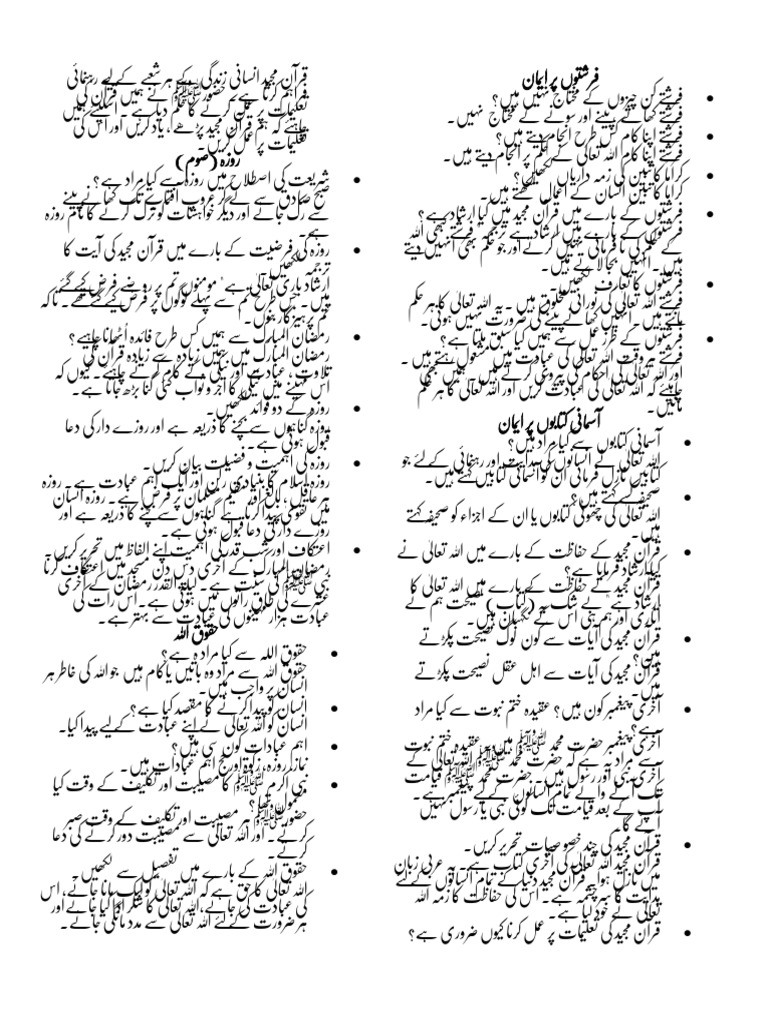 فرشتوں پر ایمان
فرشتے کن چیزوں کے محتاج نہیں ہیں؟
فرشتے کھانے پینے اور سونے کے محتاج نہیں۔
فرشتے اپنا کام کس طرح انجام دیتے ہیں؟
فرشتے اپنا کام اللہ تعالی کے حکم پر انجام دیتے ہیں۔
کراما کاتبین کی ذمہ داریاں لکھیں؟
کراما کاتبین انسان کے اعمال لکھتے ہیں۔
فرشتوں کے بارے میں قرآن مجید میں کیا ارشاد ہے؟
فرشتوں کے بارے میں ارشاد ہے ترجمہ: فرشتے کبھی اللہ
کے حکم کی نا فرمانی نہیں کرتے اور جو حکم بھی انہیں دیتے
ہیں۔ انہیں بجا لاتے ہیں۔
فرشتوں کا تعارف لکھیں۔
فرشتے اللہ تعالی کی نورانی مخلوق ہیں۔ یہ اللہ تعالیٰ کا ہر حکم
مانتے ہیں۔ انہیں کھانے پینے کی ضرورت نہیں ہوتی۔
فرشتوں کے طرز عمل سے ہمیں کیا سبق ملتا ہے؟
فرشتے ہر وقت اللہ تعالی کی عبادت میں مشغول رہتے ہیں۔
اور اللہ تعالی کی احکام کی پیروی کرتے ہیں۔ ہمیں بھی
چاہیئے کہ اللہ تعالی کی عبادت کریں اور اللہ تعالی کا ہر حکم
مانیں۔
آسمانی کتابوں پر ایمان
آسمانی کتابوں سے کیا مراد ہیں؟
اللہ تعالی نے انسانوں کی ہدایت اور رہنمائی کے لئے جو
کتابیں نازل فرمائی ان کو آسمانی کتابیں کہتے ہیں۔
صحیفہ کسے کہتے ہیں؟
اللہ تعالی کی چھوٹی کتابوں یا ان کے اجزاء کو صحیفہ کہتے
ہیں۔
قرآن مجید کے حفاظت کے بارے میں اللہ تعالیٰ نے
کیا ارشاد فرمایا ہے؟
قرآن مجید کے حفاظت کے بارے میں اللہ تعالیٰ کا
ارشاد ہے" بے شک یہ (کتاب) نصیحت ہم نے
اتاری اور ہم ہی اس کے نگہبان ہیں۔
قرآن مجید کی آیات سے کون لوگ نصیحت پکڑتے
ہیں؟
قرآن مجید کی آیات سے اہل عقل نصیحت پکڑتے
ہیں۔
آخری پیغمبر کون ہیں؟ عقیدہ ختم نبوت سے کیا مراد
ہے؟
آخری پیغمبر حضرت محمد ﷺ ہیں۔ عقیدہ ختم نبوت
سے مراد یہ ہے کہ حضرت محمد ﷺ اللہ تعالیٰ کے
آخری نبی اور رسول ہیں۔ حضرت محمد ﷺ قیامت
تک آنے والے تمام انسانوں کے لیے پیغمبر ہے۔
آپ کے بعد قیامت تک کوئی نبی یا رسول نہیں
آئے گا۔
قرآن مجید کی چند خصوصیات تحریر کریں۔
قرآن مجید اللہ تعالی کی آخری کتاب ہے۔ یہ عربی زبان
میں نازل ہوا۔ قرآن مجید دنیا کے تمام انسانوں کے لئے
ہدایت کا سرچشمہ ہے۔ اس کی حفاظت کا ذمہ اللہ
تعالی نے خود لیا ہے۔
قرآن مجید کی تعلیمات پر عمل کرنا کیوں ضروری ہے؟
قرآن مجید انسانی زندگی کے ہر شعبے کے لیے رہنمائی
فراہم کرتا ہے۔ حضور ﷺ نے ہمیں قرآن کی
تعلیمات پر عمل کرنے کا حکم دیا ہے۔ اسلیئے ہمیں
چاہیے کہ ہم قرآن مجید پڑھے، یاد کریں اور اس کی
تعلیمات پر عمل کریں۔
روزہ (صوم)
شریعت کی اصطلاح میں روزہ سے کیا مراد ہے؟
صبح صادق سے لے کر غروب آفتاب تک کھانے پینے
سے رک جانے اور دیگر خواہشات کو ترک کرنے کا نام روزہ
ہے۔
روزہ کی فرضیت کے بارے میں قرآن مجید کی آیت کا
ترجمہ لکھیں۔
ارشاد باری تعالی ہے' مومنوں تم پر روزے فرض کیے گئے
ہیں۔ جس طرح تم سے پہلے لوگوں پر فرض کیے گئے تھے۔ تاکہ
تم پرہیز گار بنوں۔
رمضان المبارک سے ہمیں کس طرح فائدہ اُٹھانا چاہیے؟
رمضان المبارک میں ہمیں زیادہ سے زیادہ قرآن کی
تلاوت، عبادت اور نیکی کے کام کرنے چاہیے۔ کیوں کہ
اس مہینے میں نیکی کا اجر و ثواب کئی گنا بڑھ جاتا ہے۔
روزہ کے دو فوائد لکھیں۔
روزہ گناہوں سے بچنے کا ذریعہ ہے اور روزے دار کی دعا
قبول ہوتی ہے۔
روزہ کی اہمیت و فضیلت بیان کریں۔
روزہ اسلام کا بنیادی رکن اور ایک اہم عبادت ہے۔ روزہ
ہر عاقل، بالغ اور مقیم مسلمان پر فرض ہے۔ روزہ انسان
میں تقوی پیدا کرتا ہے گناہوں سے بچنے کا ذریعہ ہے اور
روزے دار کی دعا قبول ہوتی ہے۔
اعتکاف اور شب قدر کی اہمیت اپنے الفاظ میں تحریر کریں۔
رمضان المبارک کے آخری دس دن مسجد میں اعتکاف کرنا
نبی ﷺ کی سنت ہے۔ لیلۃ القدر رمضان کے آخری
عشرے کی طاق راتوں میں ہوتی ہے۔ اس رات کی
عبادت ہزار مہینوں کی عبادت سے بہتر ہے۔
حقوق اللہ
حقوق اللہ سے کیا مراد ہ ہے؟
حقوق اللہ سے مراد وہ باتیں یا کام ہیں جو اللہ کی خاطر ہر
انسان پر واجب ہیں۔
انسان کو پیدا کرنے کا مقصد کیا ہے؟
انسان کو اللہ تعالی نے اپنے عبادت کے لیے پیدا کیا۔
اہم عبادات کون سی ہیں؟
نماز، روزہ، زکوٰۃ اور حج اہم عبادات ہیں۔
نبی اکرم ﷺ کا مصیبت اور تکلیف کے وقت کیا
معمول تھا؟
حضور ﷺ ہر مصیبت اور تکلیف کے وقت صبر
کرتے۔ اور اللہ تعالی سے مصیبت دور کرنے کی دعا
کرتے۔
حقوق اللہ کے بارے میں تفصیل سے لکھیں۔
اللہ تعالی کا حق ہے کہ اللہ تعالیٰ کو ایک مانا جائے، اس
کی عبادت کی جائے، اللہ تعالیٰ کا شکر ادا کیا جائے اور
ہر ضرورت کے لئے اللہ تعالیٰ سے مدد مانگی جائے۔